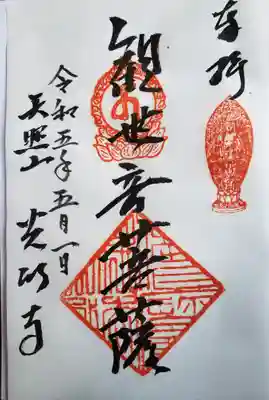 奉拝
観世音菩薩
令和五年五月一日
天照山
光明寺